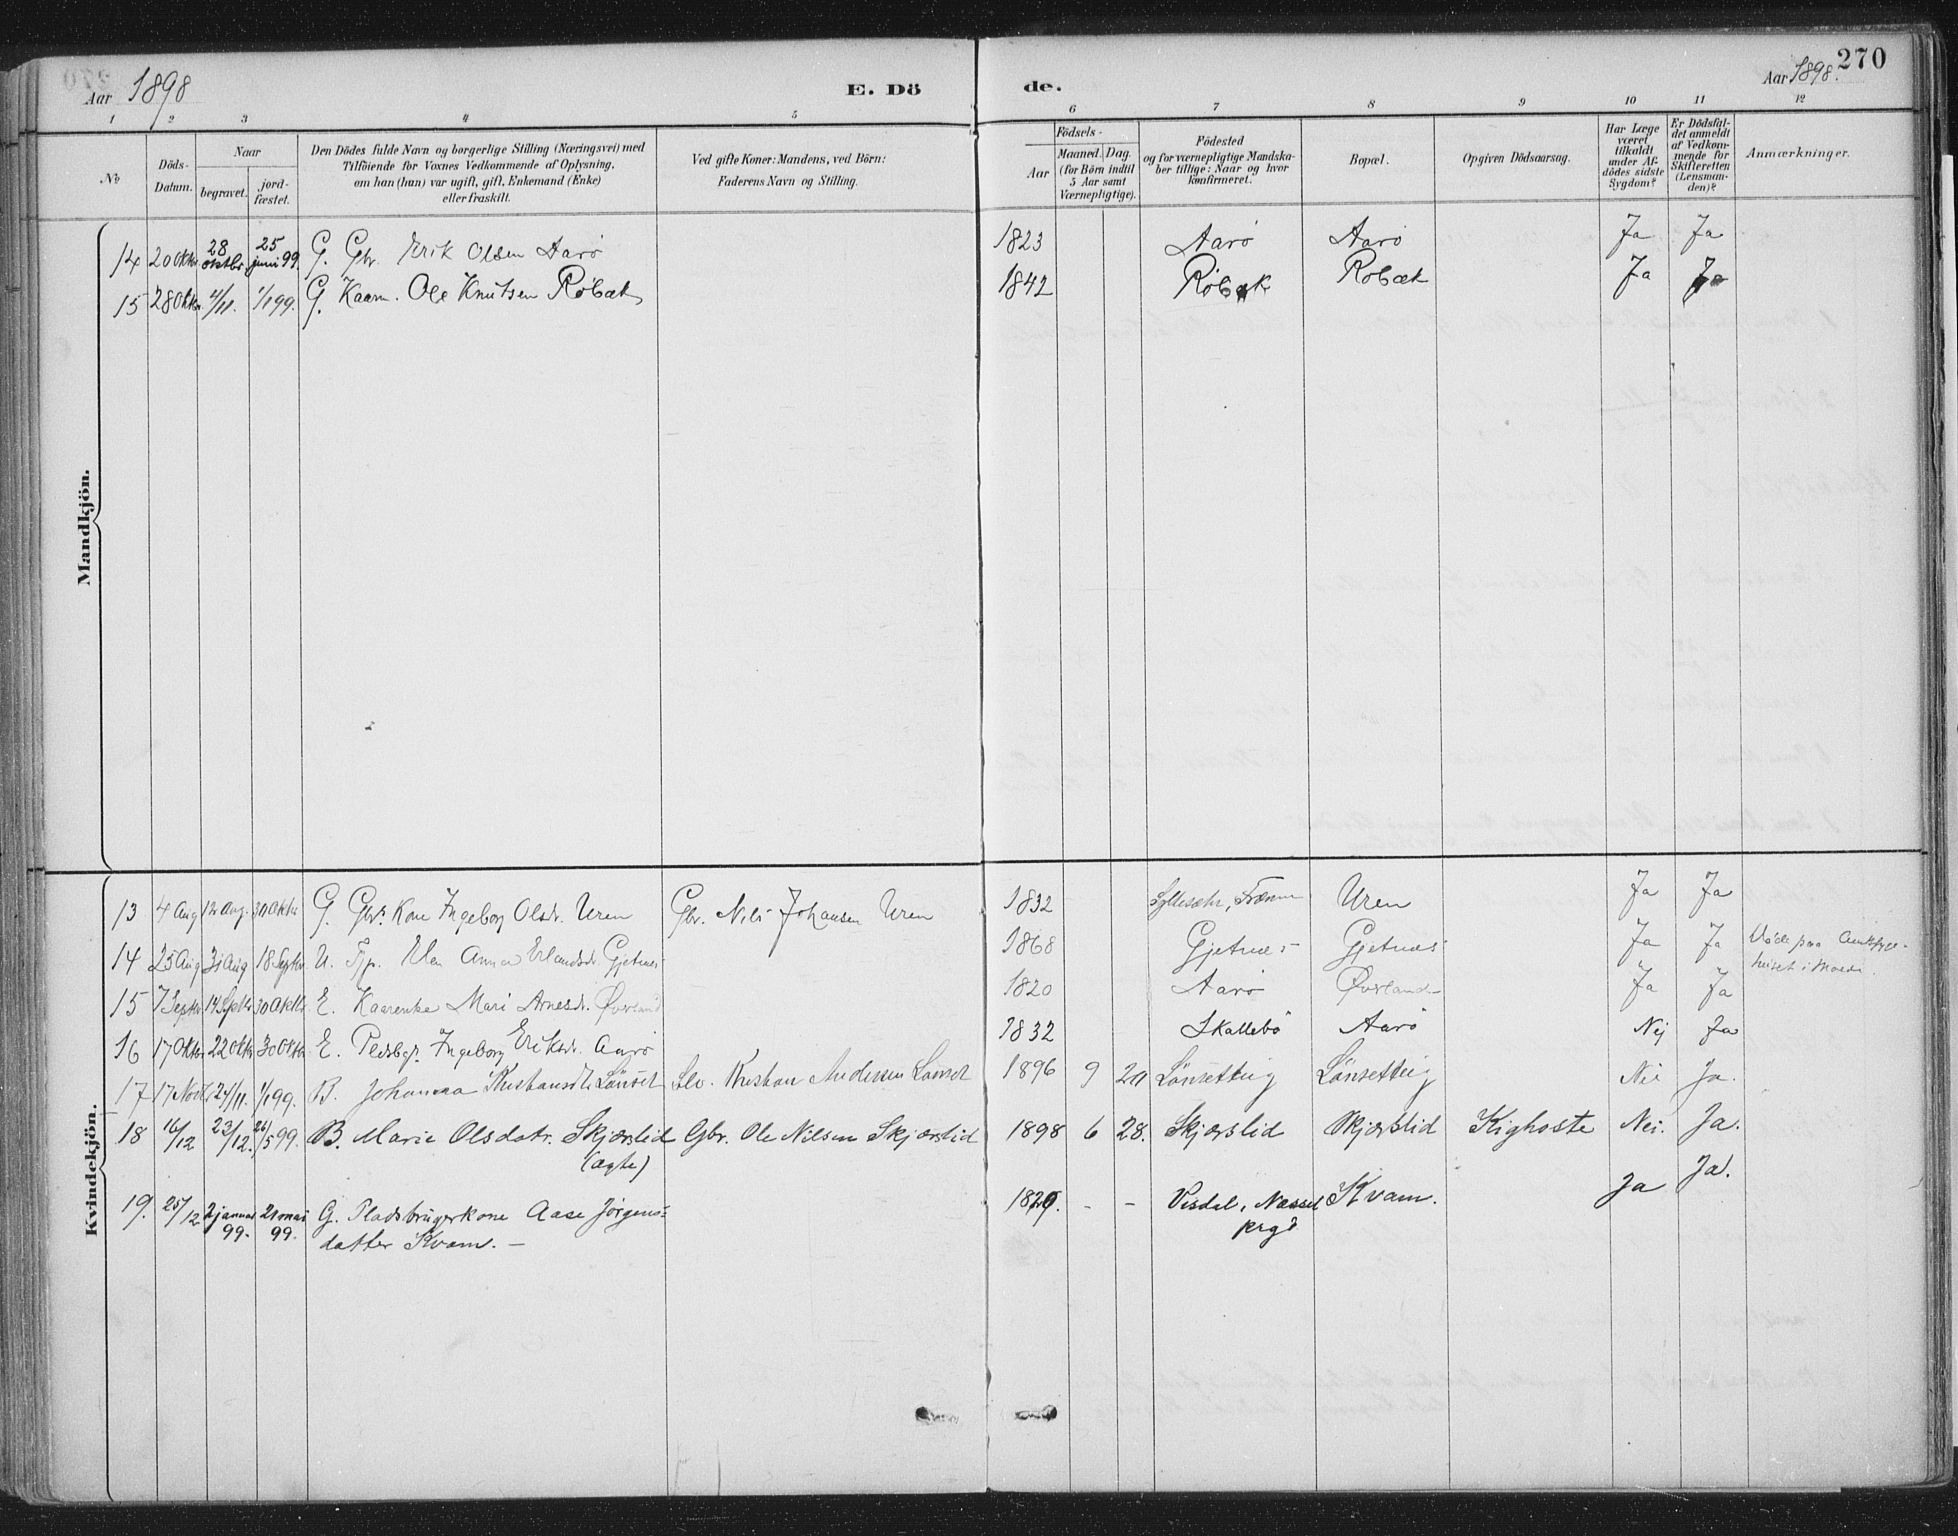 270
Aar 1898
E. Dö
de.
Aar 1898.
1 2 3 4 5 6 7 8 9 10 11 12
№
Döds-Datum.
Naar
begravet.
jord-fæstet.
Den Dödes fulde Navn og borgerlige Stilling (Næringsvei) med
Tilföiende for Voxnes Vedkommende af Oplysning,
om han (hun) var ugift, gift, Enkemand (Enke)
eller fraskilt.
Ved gifte Koner: Mandens, ved Börn:
Faderens Navn og Stilling.
Födsels-
Aar
Maaned. Dag.
(for Börn indtil
5 Aar samt
Værnepligtige).
Födested
og for værnepligtige Mandska-
ber tillige: Naar og hvor
konfirmeret.
Bopæl.
Opgiven Dödsaarsag.
Har Læge
været
tilkaldt
under Af-
dödes sidste
Sygdom?
Er Dödsfal-
det anmeldt
af Vedkom-
mende for
Skifteretten
(Lensman-
den)?
Anmærkninger.
Mandkjön.
14 20 Oktbr 28 oktbr. 25 juni 99. G. Gbr. Erik Olsen Aarö 1823 Aarö Aarö Ja Ja
15 28 Oktbr 4/11. 1/1 99. G. Kaarm. Ole Knutsen Röbæk 1842 Röbæk Röbæk Ja Ja
Kvindekjön.
13 4 Aug 12 Aug. 30 Oktbr G. Gbrs Kone Ingeborg Olsdr. Uren Gbr. Nils Johansen Uren 1832 Uren Ja Ja
14 25 Aug 31 Aug 18 Septbr U. Anna Erlandsdr. Gjetnæs 1868 Gjetnæs Gjetnæs Ja Ja
Döde paa Amtssyge-
huset i Molde.
15 7 Septbr 14 Septbr 30 Oktbr. E. Kaarenke Mari Arnesdr. Överland 1820 Aarö Överland Ja Ja
16 17 Oktbr 22 Oktbr 30 Oktbr E. Pladsbgr. Ingeborg Eriksdr. Aarö 1832 Skallebö Aarö Nej Ja
17 17 Novb 24/11. 1/1 99. B. Johanna Kristiansdtr Lönset Kristian Andersen Lönset 1896 9 20 Lönsetteig Lönsetteig Nei Ja.
18 16/12 23/12. 26/5 99. B. Marie Olsdatr. Skjærslid Gbr. Ole Nilsen Skjærslid 1898 6 28. Skjærslid Skjærslid Kighoste Nei. Ja.
(ægte)
19. 25/12 2 januar 99. 21 mai 99. G. Pladsbrugerkone Aase Jörgens=
datter Kvam. – - - Visdal, Næsset
prgd Kvam. Ja Ja.